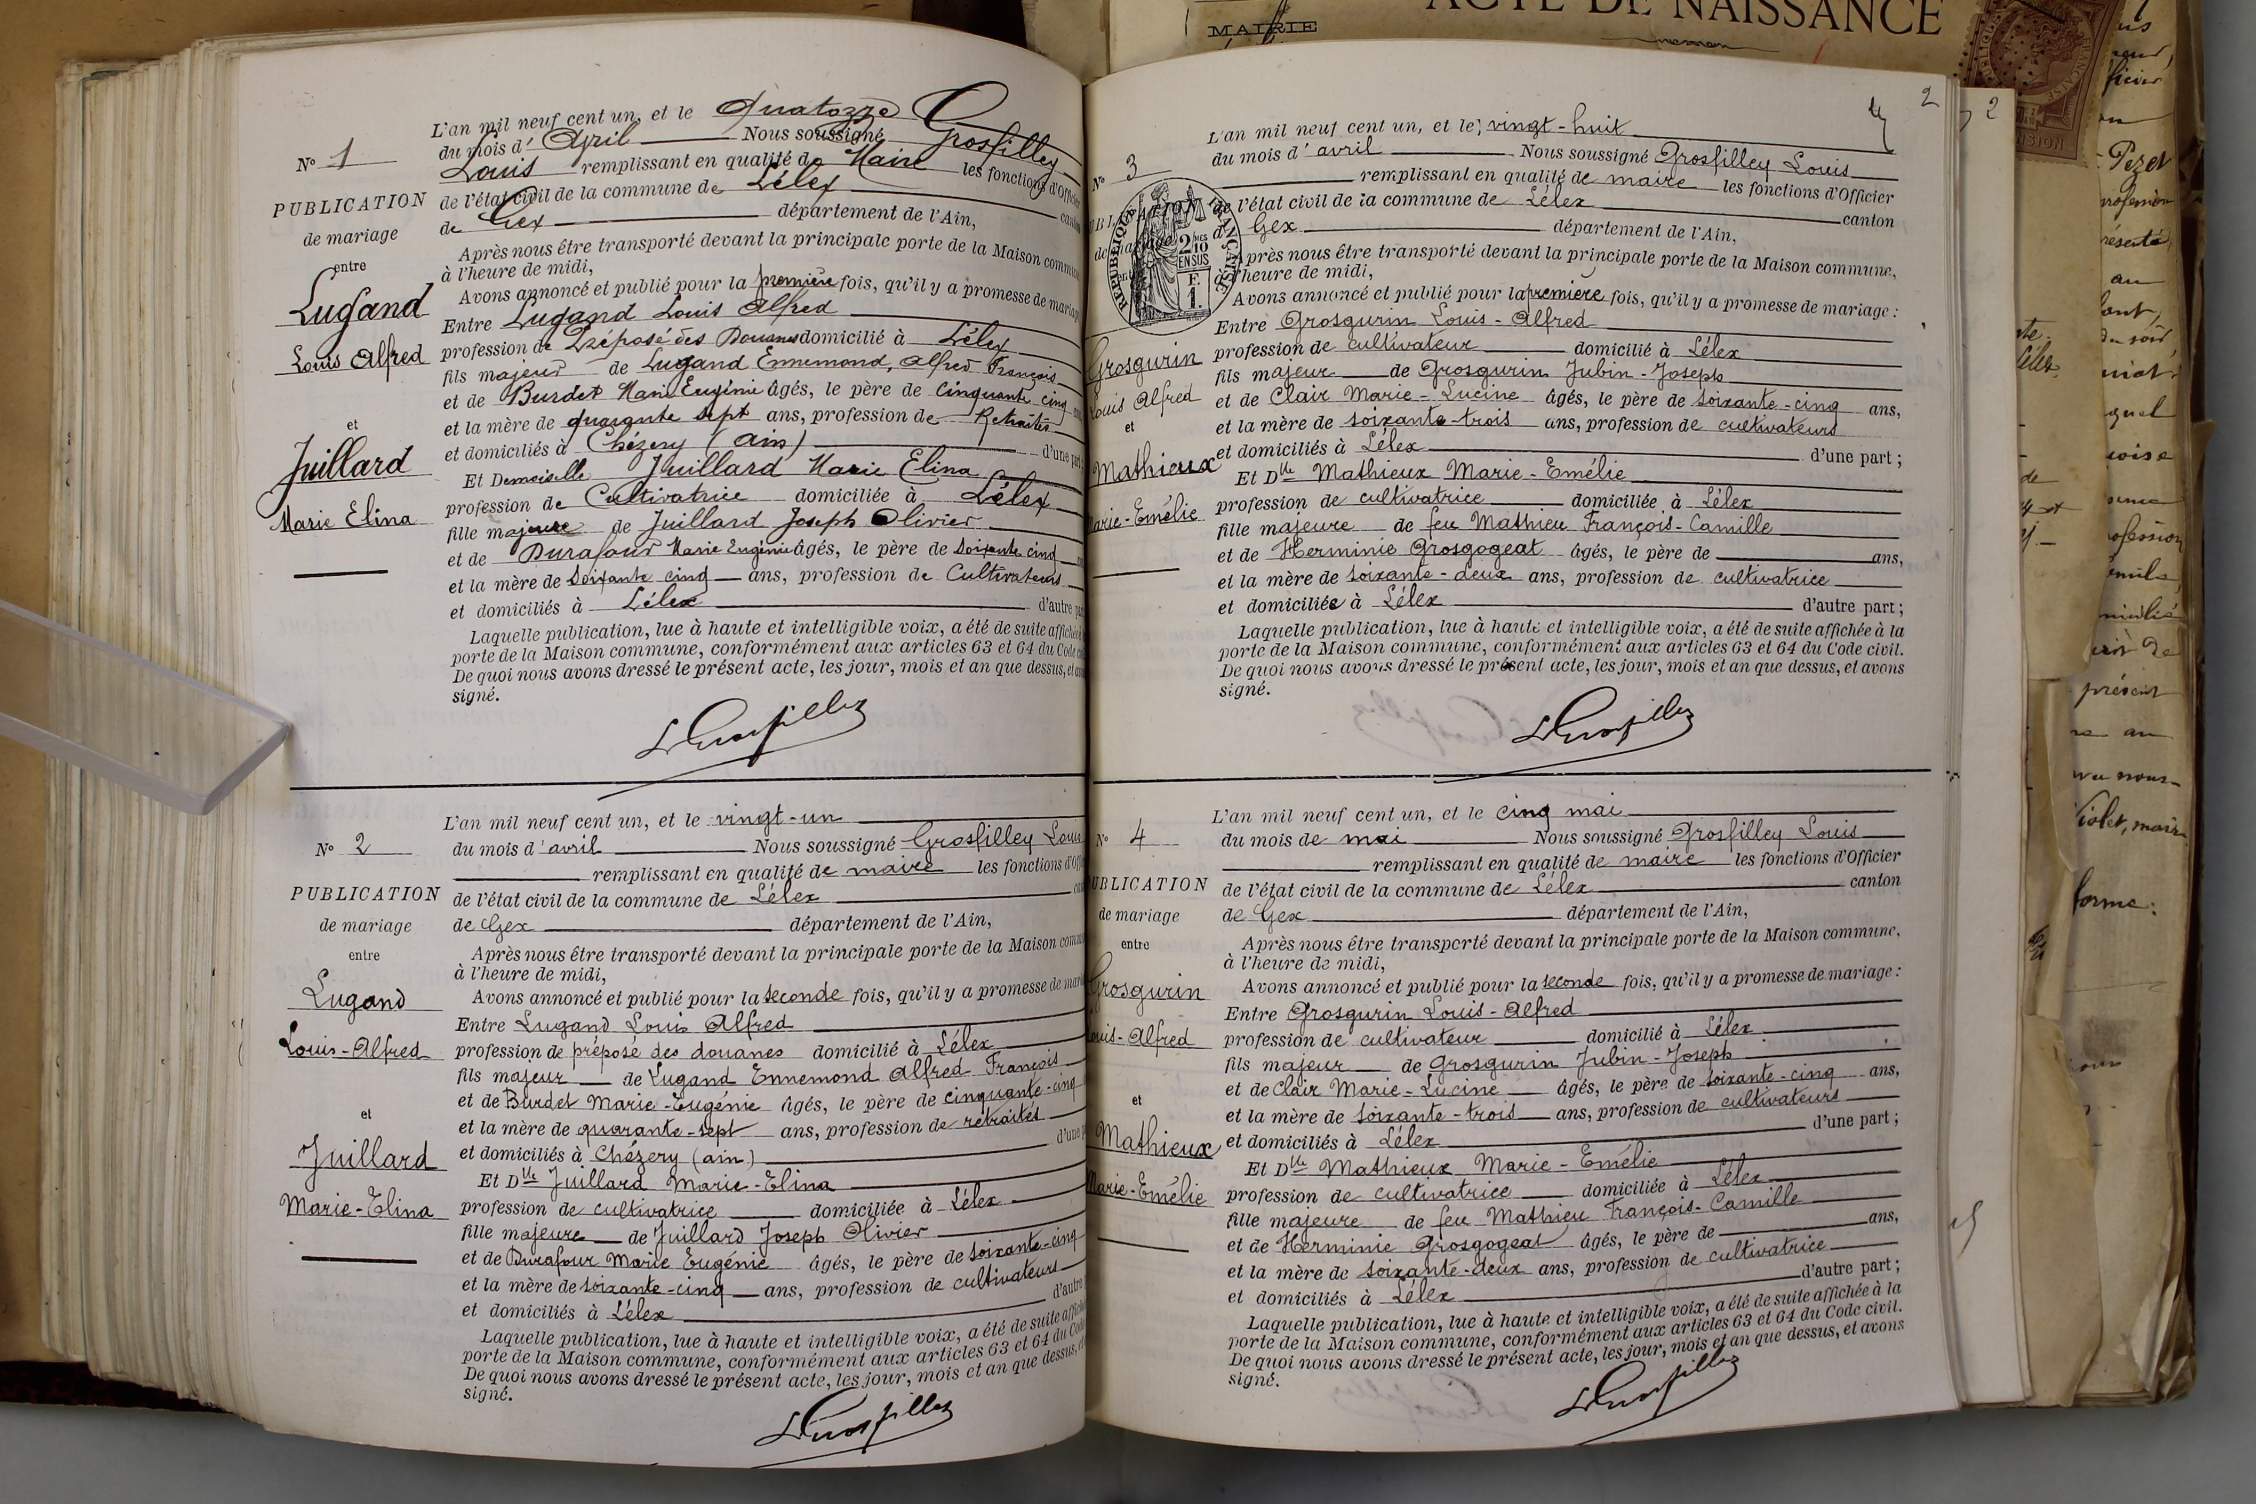 N° 1
PUBLICATION
de mariage
entre
Lugand
Louis Alfred
et
Juillard
Marie Elina
L'an mil neuf cent un, et le quatozze
du mois d' Avril Nous soussigné Grosfilley
Louis remplissant en qualité de Maire les fonctions d'Officier
de l'état civil de la commune de Lélex canton
de Gex département de l'Ain,
Après nous être transporté devant la principale porte de la Maison commune
à l'heure de midi,
Avons annoncé et publié pour la première fois, qu'il y a promesse de mariage
Entre Lugand Louis Alfred
profession de Préposé des Douanes domicilié à Lélex
fils majeur de Lugand Ennemond, Alfred François
et de Burdet Marie Eugénie âgés, le père de cinquante cinq
et la mère de quarante sept ans, profession de Retraités
et domiciliés à Chézery (Ain) d'une part;
Et Demoiselle Juillard Marie Elina
profession de Cultivatrice domiciliée à Lélex
fille majeure de Juillard Joseph Olivier
et de Durafour Marie Eugénie âgés, le père de Soixante cinq
et la mère de Soixante cinq ans, profession de Cultivateurs
et domiciliés à Lélex d'autre part
Laquelle publication, lue à haute et intelligible voix, a été de suite affichée à
porte de la Maison commune, conformément aux articles 63 et 64 du Code
De quoi nous avons dressé le présent acte, les jour, mois et an que dessus, et
signé.
L Grosfilley
N° 2
PUBLICATION
de mariage
entre
Lugand
Louis-Alfred
et
Juillard
Marie-Elina
L'an mil neuf cent un, et le vingt-un
du mois d'avril Nous soussigné Grosfilley Louis
remplissant en qualité de maire les fonctions d'Off
de l'état civil de la commune de Lélex
de Gex département de l'Ain,
Après nous être transporté devant la principale porte de la Maison comm
à l'heure de midi,
Avons annoncé et publié pour la seconde fois, qu'il y a promesse de mar
Entre Lugand Louis Alfred
profession de préposé des douanes domicilié à Lélex
fils majeur de Lugand Ennemond Alfred François
et de Burdet Marie-Eugénie âgés, le père de cinquante-cinq
et la mère de quarante-sept ans, profession de retraités
et domiciliés à Chézery (ain) d'une p
Et Dlle Juillard Marie-Elina
profession de cultivatrice domiciliée à Lélex
fille majeure de Juillard Joseph Olivier
et de Durafour Marie Eugénie âgés, le père de soixante-cinq
et la mère de soixante-cinq ans, profession de cultivateurs
et domiciliés à Lélex d'autre
Laquelle publication, lue à haute et intelligible voix, a été de suite affiché
porte de la Maison commune, conformément aux articles 63 et 64 du Code
De quoi nous avons dressé le présent acte, les jour, mois et an que dessus,
signé.
L Grosfilley
MAIRIE
ACTE DE NAISSANCE
2
2
N° 3
PUBLICATION
de mariage
entre
RÉPUBLIQUE FRANÇAISE
2/10 EN SUS
F. 1.
Grosgurin
Louis Alfred
et
Mathieux
Marie-Emélie
L'an mil neuf cent un, et le vingt-huit
du mois d'avril Nous soussigné Grosfilley Louis
remplissant en qualité de maire les fonctions d'Officier
de l'état civil de la commune de Lélex canton
de Gex département de l'Ain,
Après nous être transporté devant la principale porte de la Maison commune,
à l'heure de midi,
Avons annoncé et publié pour la première fois, qu'il y a promesse de mariage :
Entre Grosgurin Louis-Alfred
profession de cultivateur domicilié à Lélex
fils majeur de Grosgurin Jubin-Joseph
et de Clair Marie-Lucine âgés, le père de soixante-cinq ans,
et la mère de soixante-trois ans, profession de cultivateurs
et domiciliés à Lélex d'une part ;
Et Dlle Mathieux Marie-Emélie
profession de cultivatrice domiciliée à Lélex
fille majeure de feu Mathieu François-Camille
et de Herminie Grosgogeat âgés, le père de ans,
et la mère de soixante-deux ans, profession de cultivatrice
et domiciliée à Lélex d'autre part ;
Laquelle publication, lue à haute et intelligible voix, a été de suite affichée à la
porte de la Maison commune, conformément aux articles 63 et 64 du Code civil.
De quoi nous avons dressé le présent acte, les jour, mois et an que dessus, et avons
signé.
L Grosfilley
N° 4
PUBLICATION
de mariage
entre
Grosgurin
Louis-Alfred
et
Mathieux
Marie-Emélie
L'an mil neuf cent un, et le cinq mai
du mois de mai Nous soussigné Grosfilley Louis
remplissant en qualité de maire les fonctions d'Officier
de l'état civil de la commune de Lélex canton
de Gex département de l'Ain,
Après nous être transporté devant la principale porte de la Maison commune,
à l'heure de midi,
Avons annoncé et publié pour la seconde fois, qu'il y a promesse de mariage :
Entre Grosgurin Louis-Alfred
profession de cultivateur domicilié à Lélex
fils majeur de Grosgurin Jubin-Joseph
et de Clair Marie-Lucine âgés, le père de soixante-cinq ans,
et la mère de soixante-trois ans, profession de cultivateurs
et domiciliés à Lélex d'une part ;
Et Dlle Mathieux Marie-Emélie
profession de cultivatrice domiciliée à Lélex
fille majeure de feu Mathieu François-Camille
et de Herminie Grosgogeat âgés, le père de ans,
et la mère de soixante-deux ans, profession de cultivatrice
et domiciliés à Lélex d'autre part ;
Laquelle publication, lue à haute et intelligible voix, a été de suite affichée à la
porte de la Maison commune, conformément aux articles 63 et 64 du Code civil.
De quoi nous avons dressé le présent acte, les jour, mois et an que dessus, et avons
signé.
L Grosfilley
Pezet
au
présent
Violet, maire
forme: